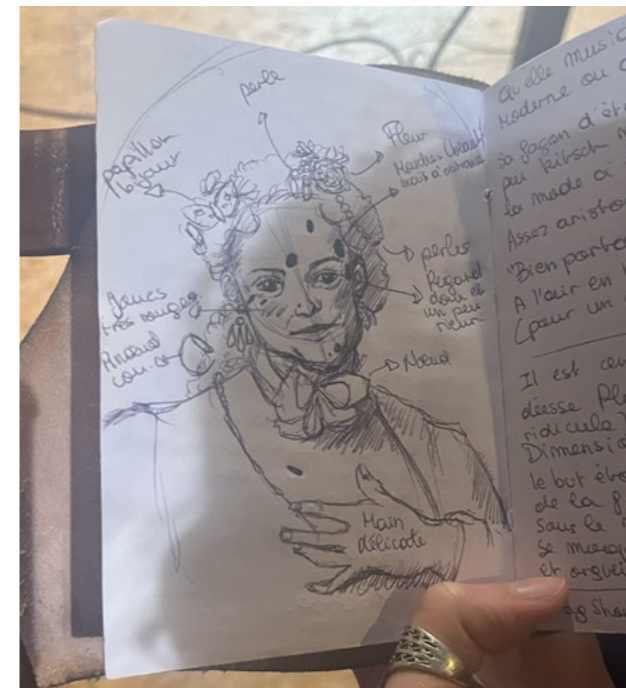 perle
papillon
bijoux
Fleur
mais
perles
Regard
doux et
un peu
rieur
Joues
très rouges
Anneau
Nœud
Main
délicate
Quelle music
Moderne ou c
sa façon d'êt
peu kitsch m
la mode à
Assez aristo
"Bien porta
A l'air en
(pour un
Il est cen
déesse Pl
ridicule
Dimensio
le but
de la
sous le
se moqu
et orguei
ag Sha